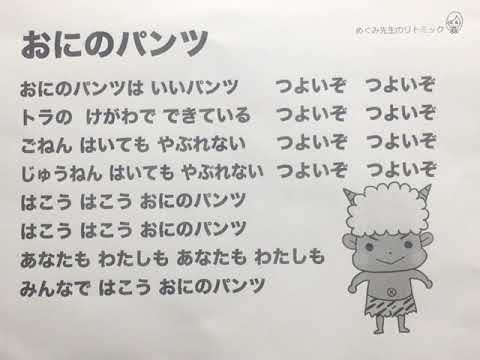 めぐみ先生のリトミック
おにのパンツ
おにのパンツは いいパンツ つよいぞ つよいぞ
トラの けがわで できている つよいぞ つよいぞ
ごねん はいても やぶれない つよいぞ つよいぞ
じゅうねん はいても やぶれない つよいぞ つよいぞ
はこう はこう おにのパンツ
はこう はこう おにのパンツ
あなたも わたしも あなたも わたしも
みんなで はこう おにのパンツ